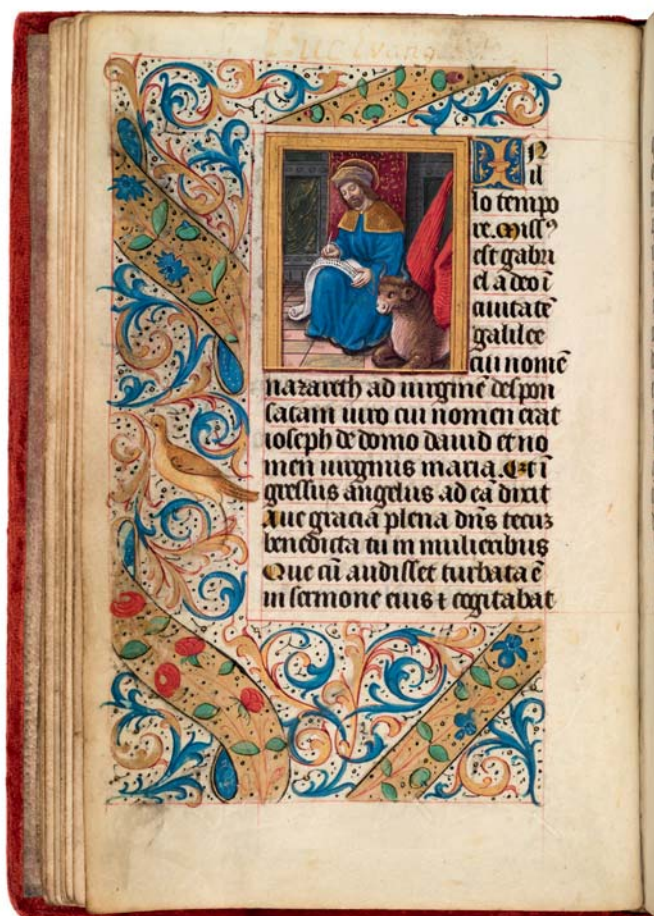 Luc Evang
IN
il
lo tempo
re. Missꝰ
est gabri
el a deo ī
ciuitatē
galilee
cui nomē
nazareth ad uirginē despon
satam uiro cui nomen erat
ioseph de domo dauid et no
men uirginis maria. Et ī
gressus angelus ad eā dixit
Aue gracia plena dn̄s tecuz
benedicta tu in mulieribus
Que cū audisset turbata ē
in sermone eius ⁊ cogitabat